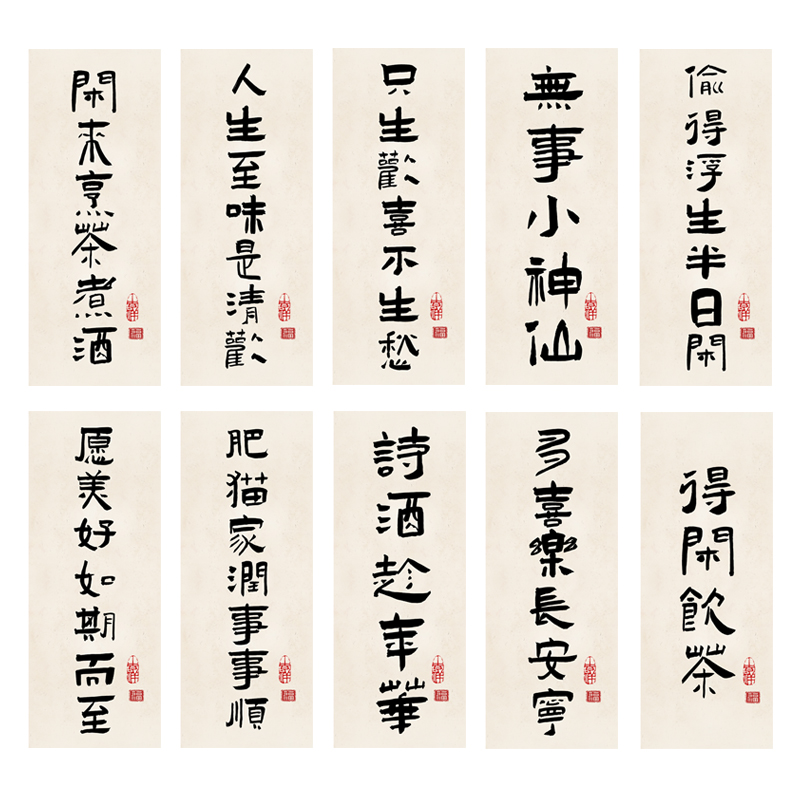 閑來烹茶煮酒
人生至味是清歡
只生歡喜不生愁
無事小神仙
偷得浮生半日閑
愿美好如期而至
肥猫家潤事事順
詩酒趁年華
多喜樂長安寧
得閑飲茶